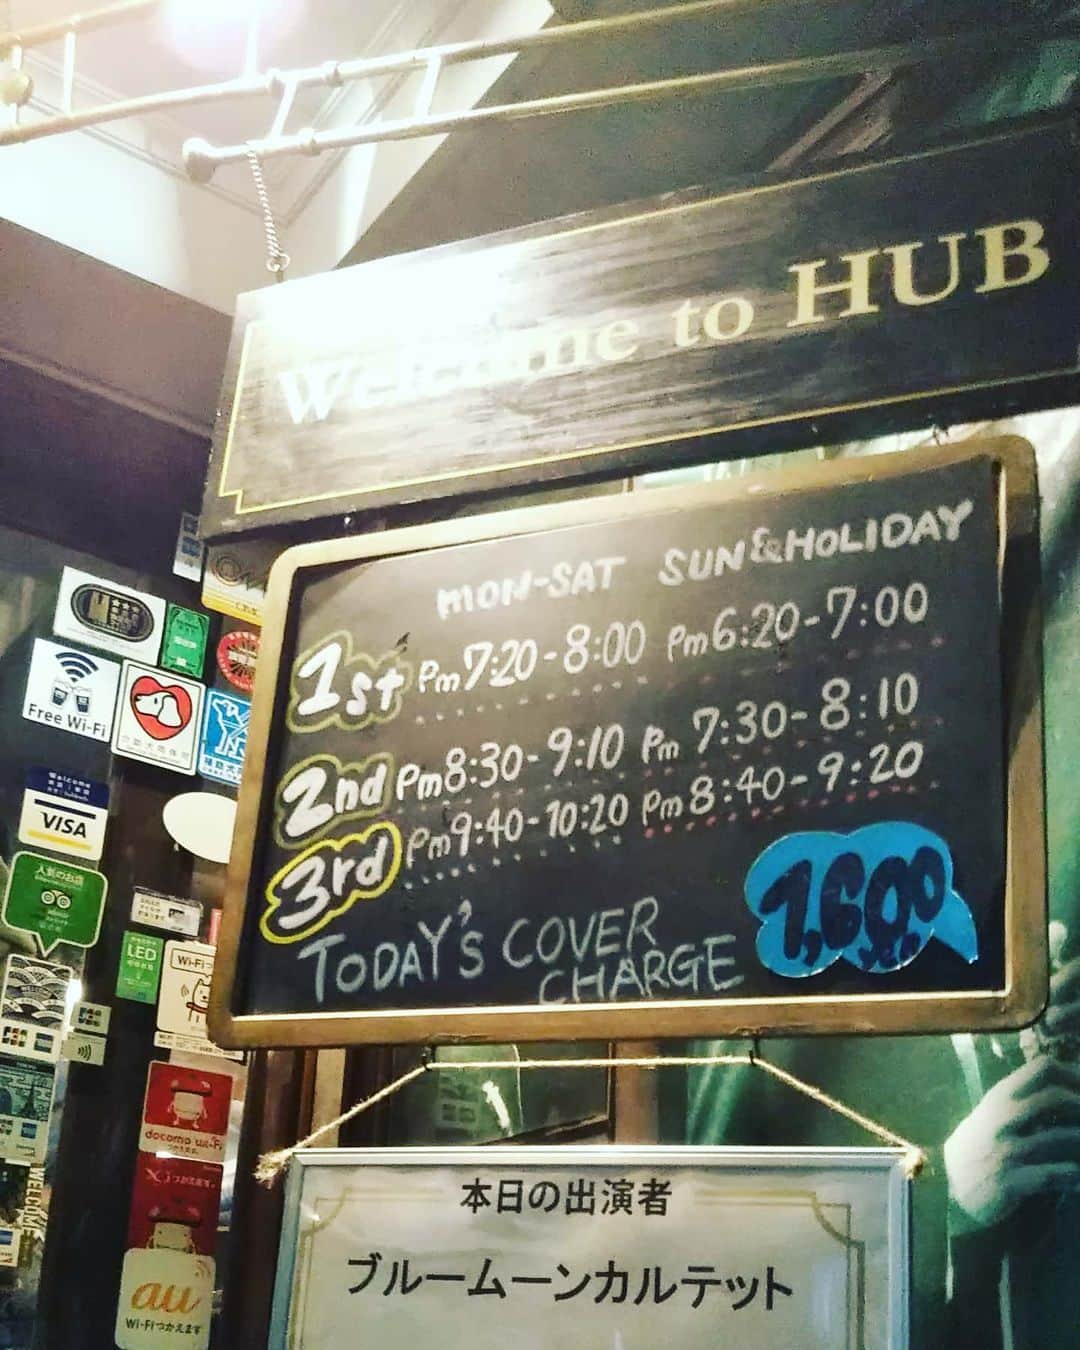 Welcome to HUB
MON-SAT SUN&HOLIDAY
1st Pm7:20-8:00 Pm6:20-7:00
2nd Pm8:30-9:10 Pm 7:30-8:10
3rd Pm9:40-10:20 Pm8:40-9:20
TODAY'S COVER CHARGE 1,600
本日の出演者
ブルームーンカルテット
Free Wi-Fi
Welcome
VISA
人気のお店
LED
Wi-Fi
docomo Wi-Fi
つかえます
au
Wi-Fiつかえます
WELCOME